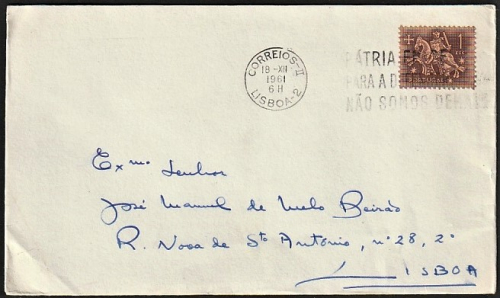 CORREIOS-II
18-XII
1961
6 H
LISBOA-2
1
PORTUGAL
PÁTRIA
PARA A
NÃO SOMOS DEMAIS
Exmo Senhor
José Manuel de Melo Beirão
R. Nova de Sto António, nº 28, 2º
LISBOA